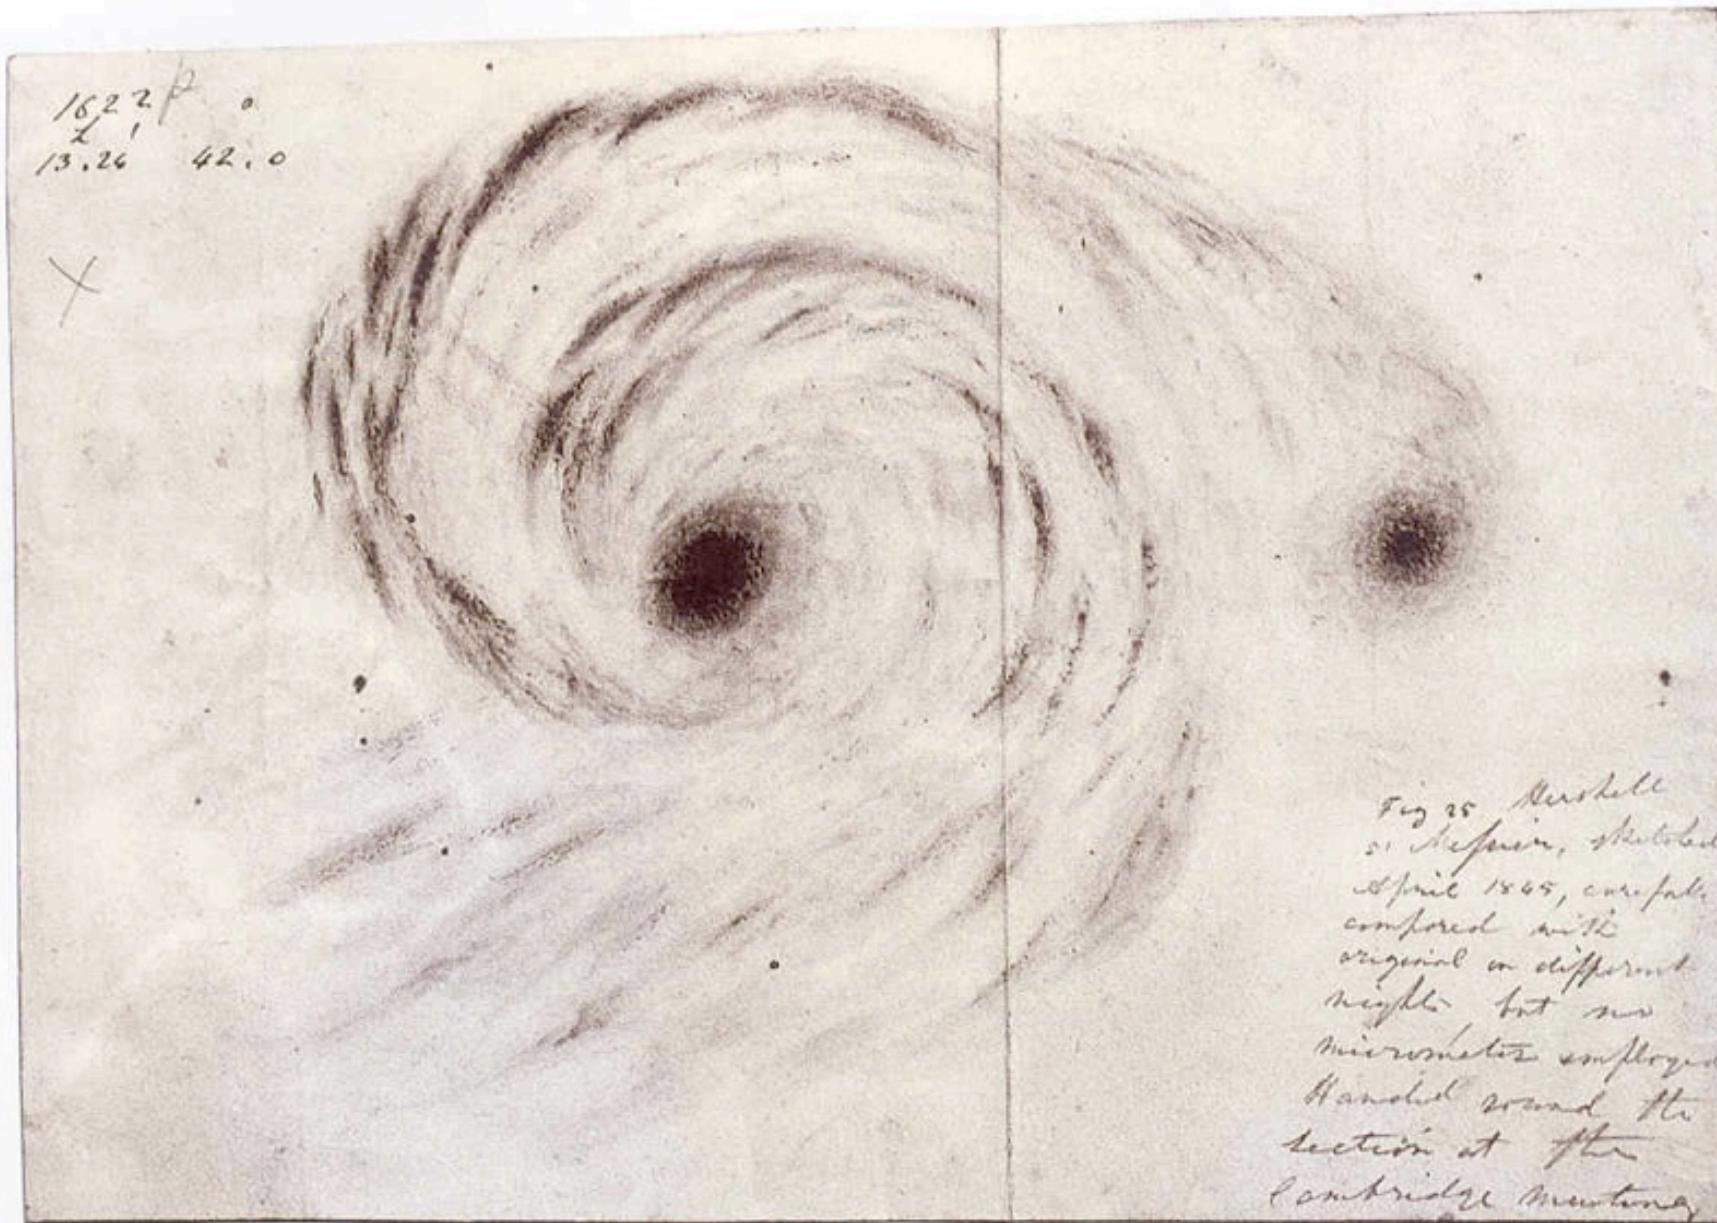 1622
h
13.26 42.0
Fig 25 Hershell
51 Messier, sketched
April 1845, carefully
compared with
original on different
nights, but no
micrometer employed
Handed round the
section at the
Cambridge meeting